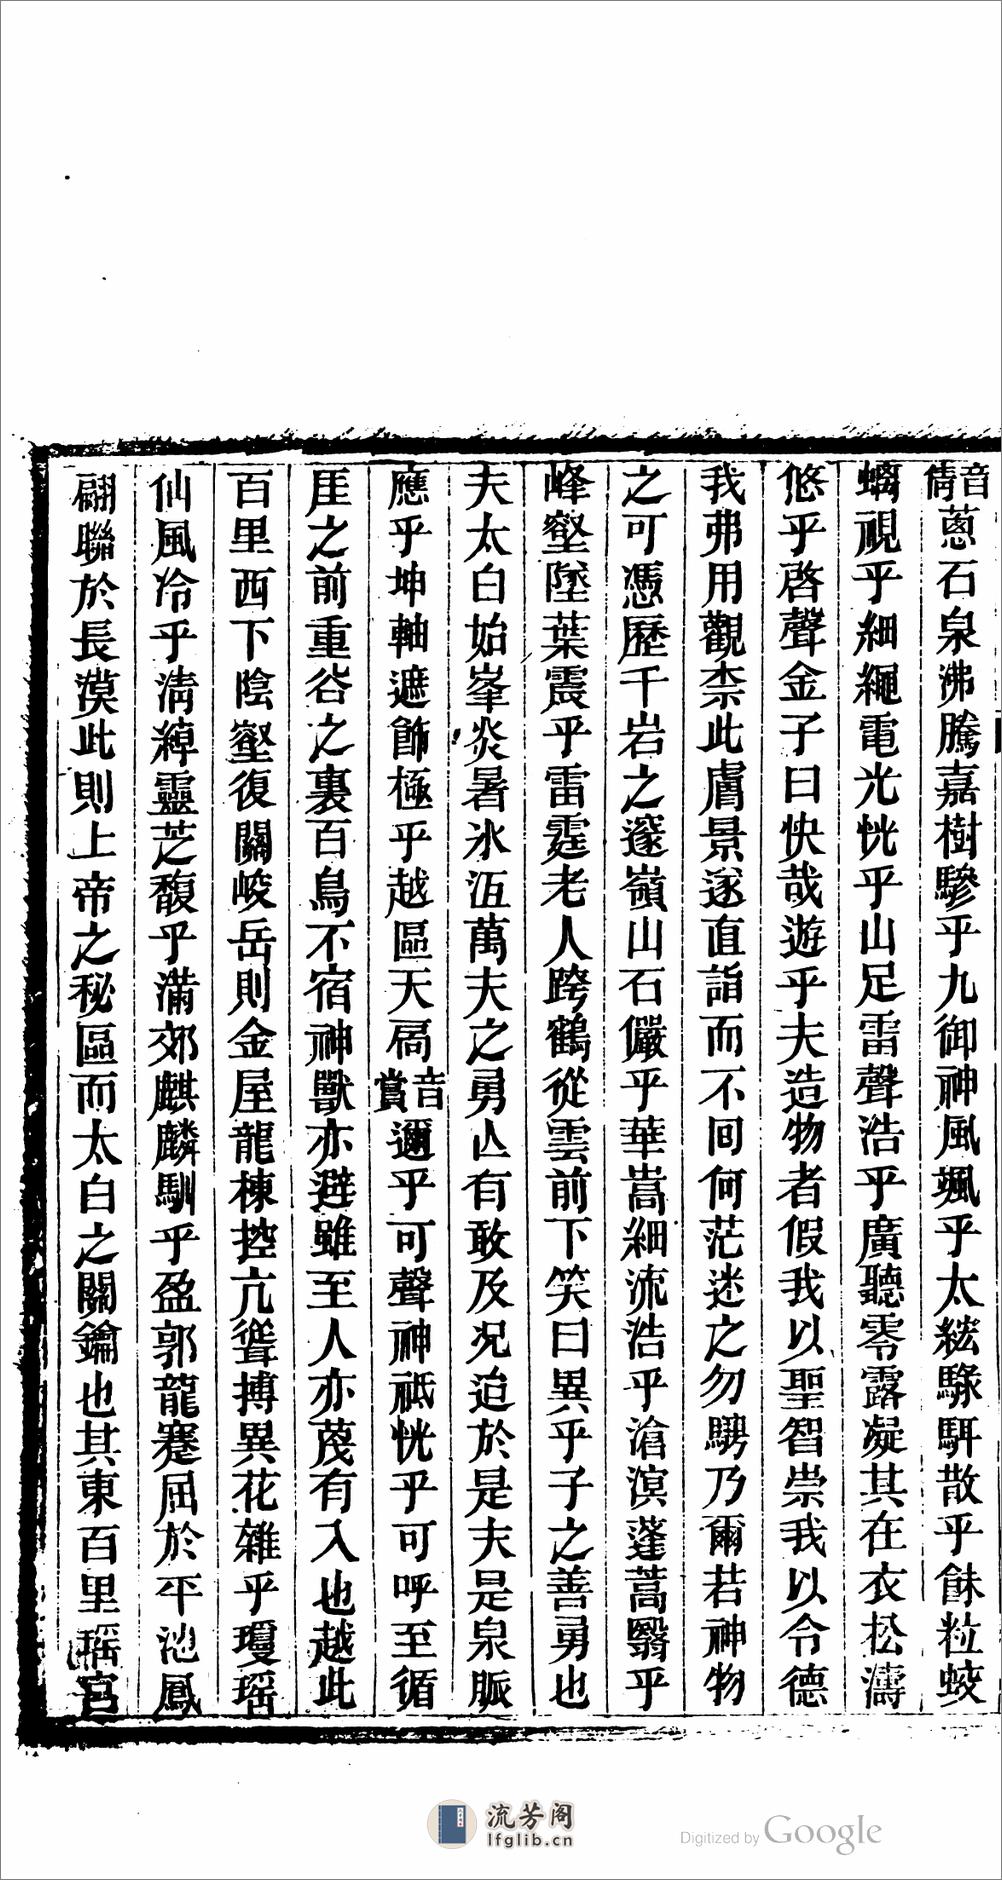 音蒨蔥石泉沸騰嘉樹驂乎九御神風颯乎太紘騄駬散乎餗粒蛟
螭視乎細繩電光恍乎山足雷聲浩乎廣聽零露凝其在衣松濤
悠乎啓聲金子曰快哉遊乎夫造物者假我以聖智崇我以令德
我弗用觀柰此膚景遂直詣而不囘何茫迷之勿騁乃爾若神物
之可憑歷千岩之邃嶺山石儼乎華嵩細流浩乎滄溟蓬蒿翳乎
峰壑墜葉震乎雷霆老人跨鶴從雲前下笑曰異乎子之善勇也
夫太白始峯炎暑氷沍萬夫之勇亾有敢及况迨於是夫是泉脈
應乎坤軸遮飾極乎越區天扃音賞邇乎可聲神祗恍乎可呼至循
厓之前重谷之裏百鳥不宿神獸亦避雖至人亦蔑有入也越此
百里西下陰壑復關峻岳則金屋龍棟控亢聳搏異花雜乎瓊瑶
仙風冷乎淸綽靈芝馥乎滿郊麒麟馴乎盈郭龍蹇屈於平池鳳
翩聯於長漠此則上帝之秘區而太白之關鑰也其東百里瑶宮
流芳阁
lfglib.cn
Digitized by Google